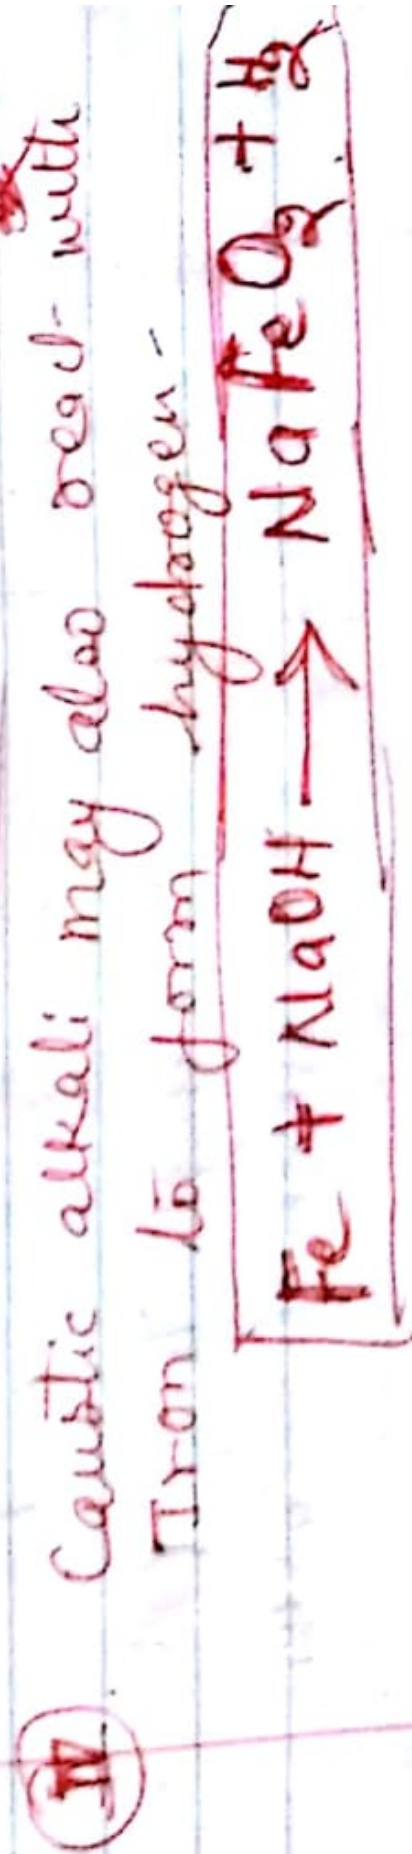 IV Caustic alkali may also react with
Iron to form hydrogen-
Fe + NaOH → NaFeO₂ + H₂